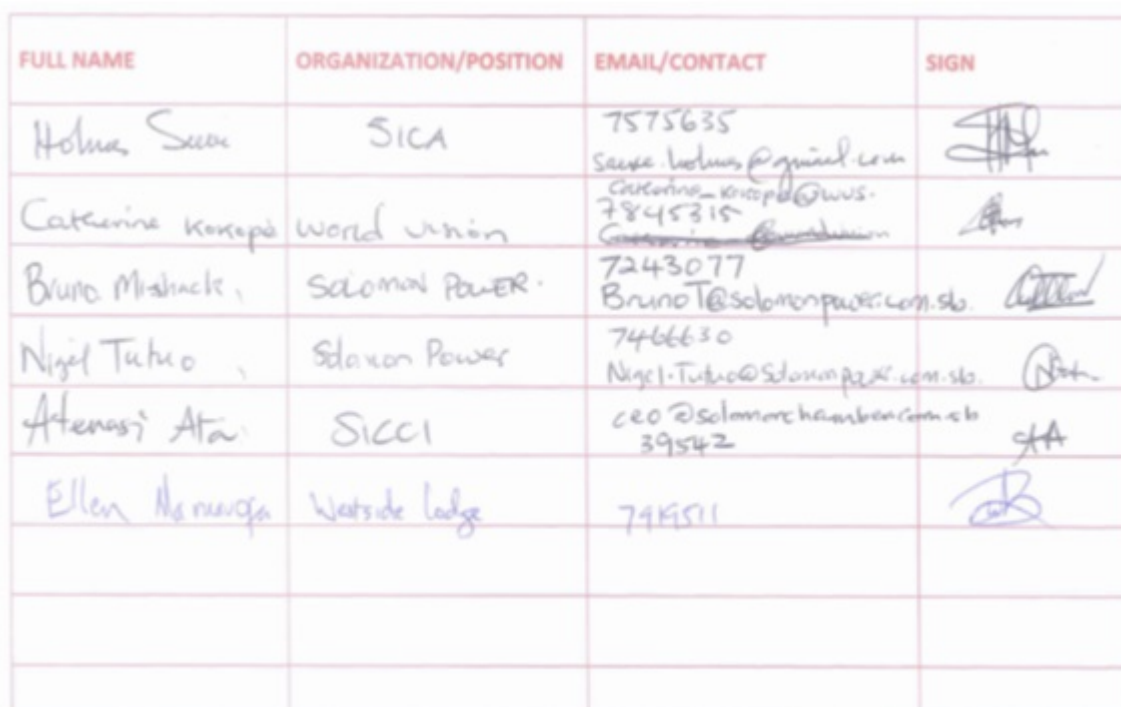 FULL NAME ORGANIZATION/POSITION EMAIL/CONTACT SIGN
Holmes SICA 7575635
Catherine Kokopu World Vision 7845315
Bruno Mishack, Solomon Power. 7243077
BrunoT@solomonpower.com.sb.
Nigel Tutuo, Solomon Power 7466630
Nigel.Tutuo@Solomonpower.com.sb.
Atenasi Ata SICCI ceo@solomonchamber.com.sb
39542
Ellen Westside Lodge 7419511